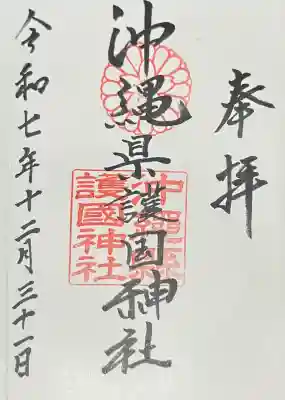 奉拝
沖縄県護国神社
沖縄縣
護國神社
令和七年十二月三十一日